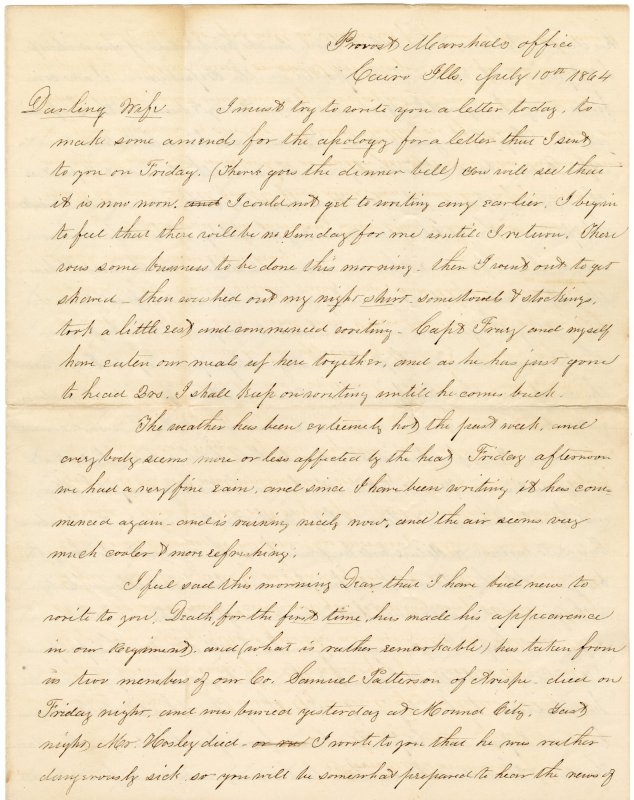 Provost Marshals office
Cairo Ills. July 10th 1864
Darling Wife I must try to write you a letter today, to
make some amends for the apology for a letter that I sent
to you on Friday. (There goes the dinner bell) You will see that
it is now noon. and I could not get to writing any earlier. I begin
to feel that there will be no Sunday for me untill I return. There
was some business to be done this morning - then I went out to get
shaved - then washed out my night shirt, some towels & stockings,
took a little rest and commenced writing - Capt and myself
have eaten our meals up here together, and as he has just gone
to head Qrs. I shall keep on writing untill he comes back.
The weather has been extremely hot the past week, and
everybody seems more or less affected by the heat Friday afternoon
we had a very fine rain, and since I have been writing it has com-
menced again - and is raining nicely now, and the air seems very
much cooler & more refreshing.
I feel sad this morning Dear that I have bad news to
write to you. Death, for the first time, has made his appearence
in our Regiment, and (what is rather remarkable) has taken from
us two members of our Co. Samuel Patterson of Arispe - died on
Friday night, and was buried yesterday at Mound City. Last
night Mr. Hosley died - I wrote to you that he was rather
dangerously sick, so you will be somewhat prepared to hear the news of